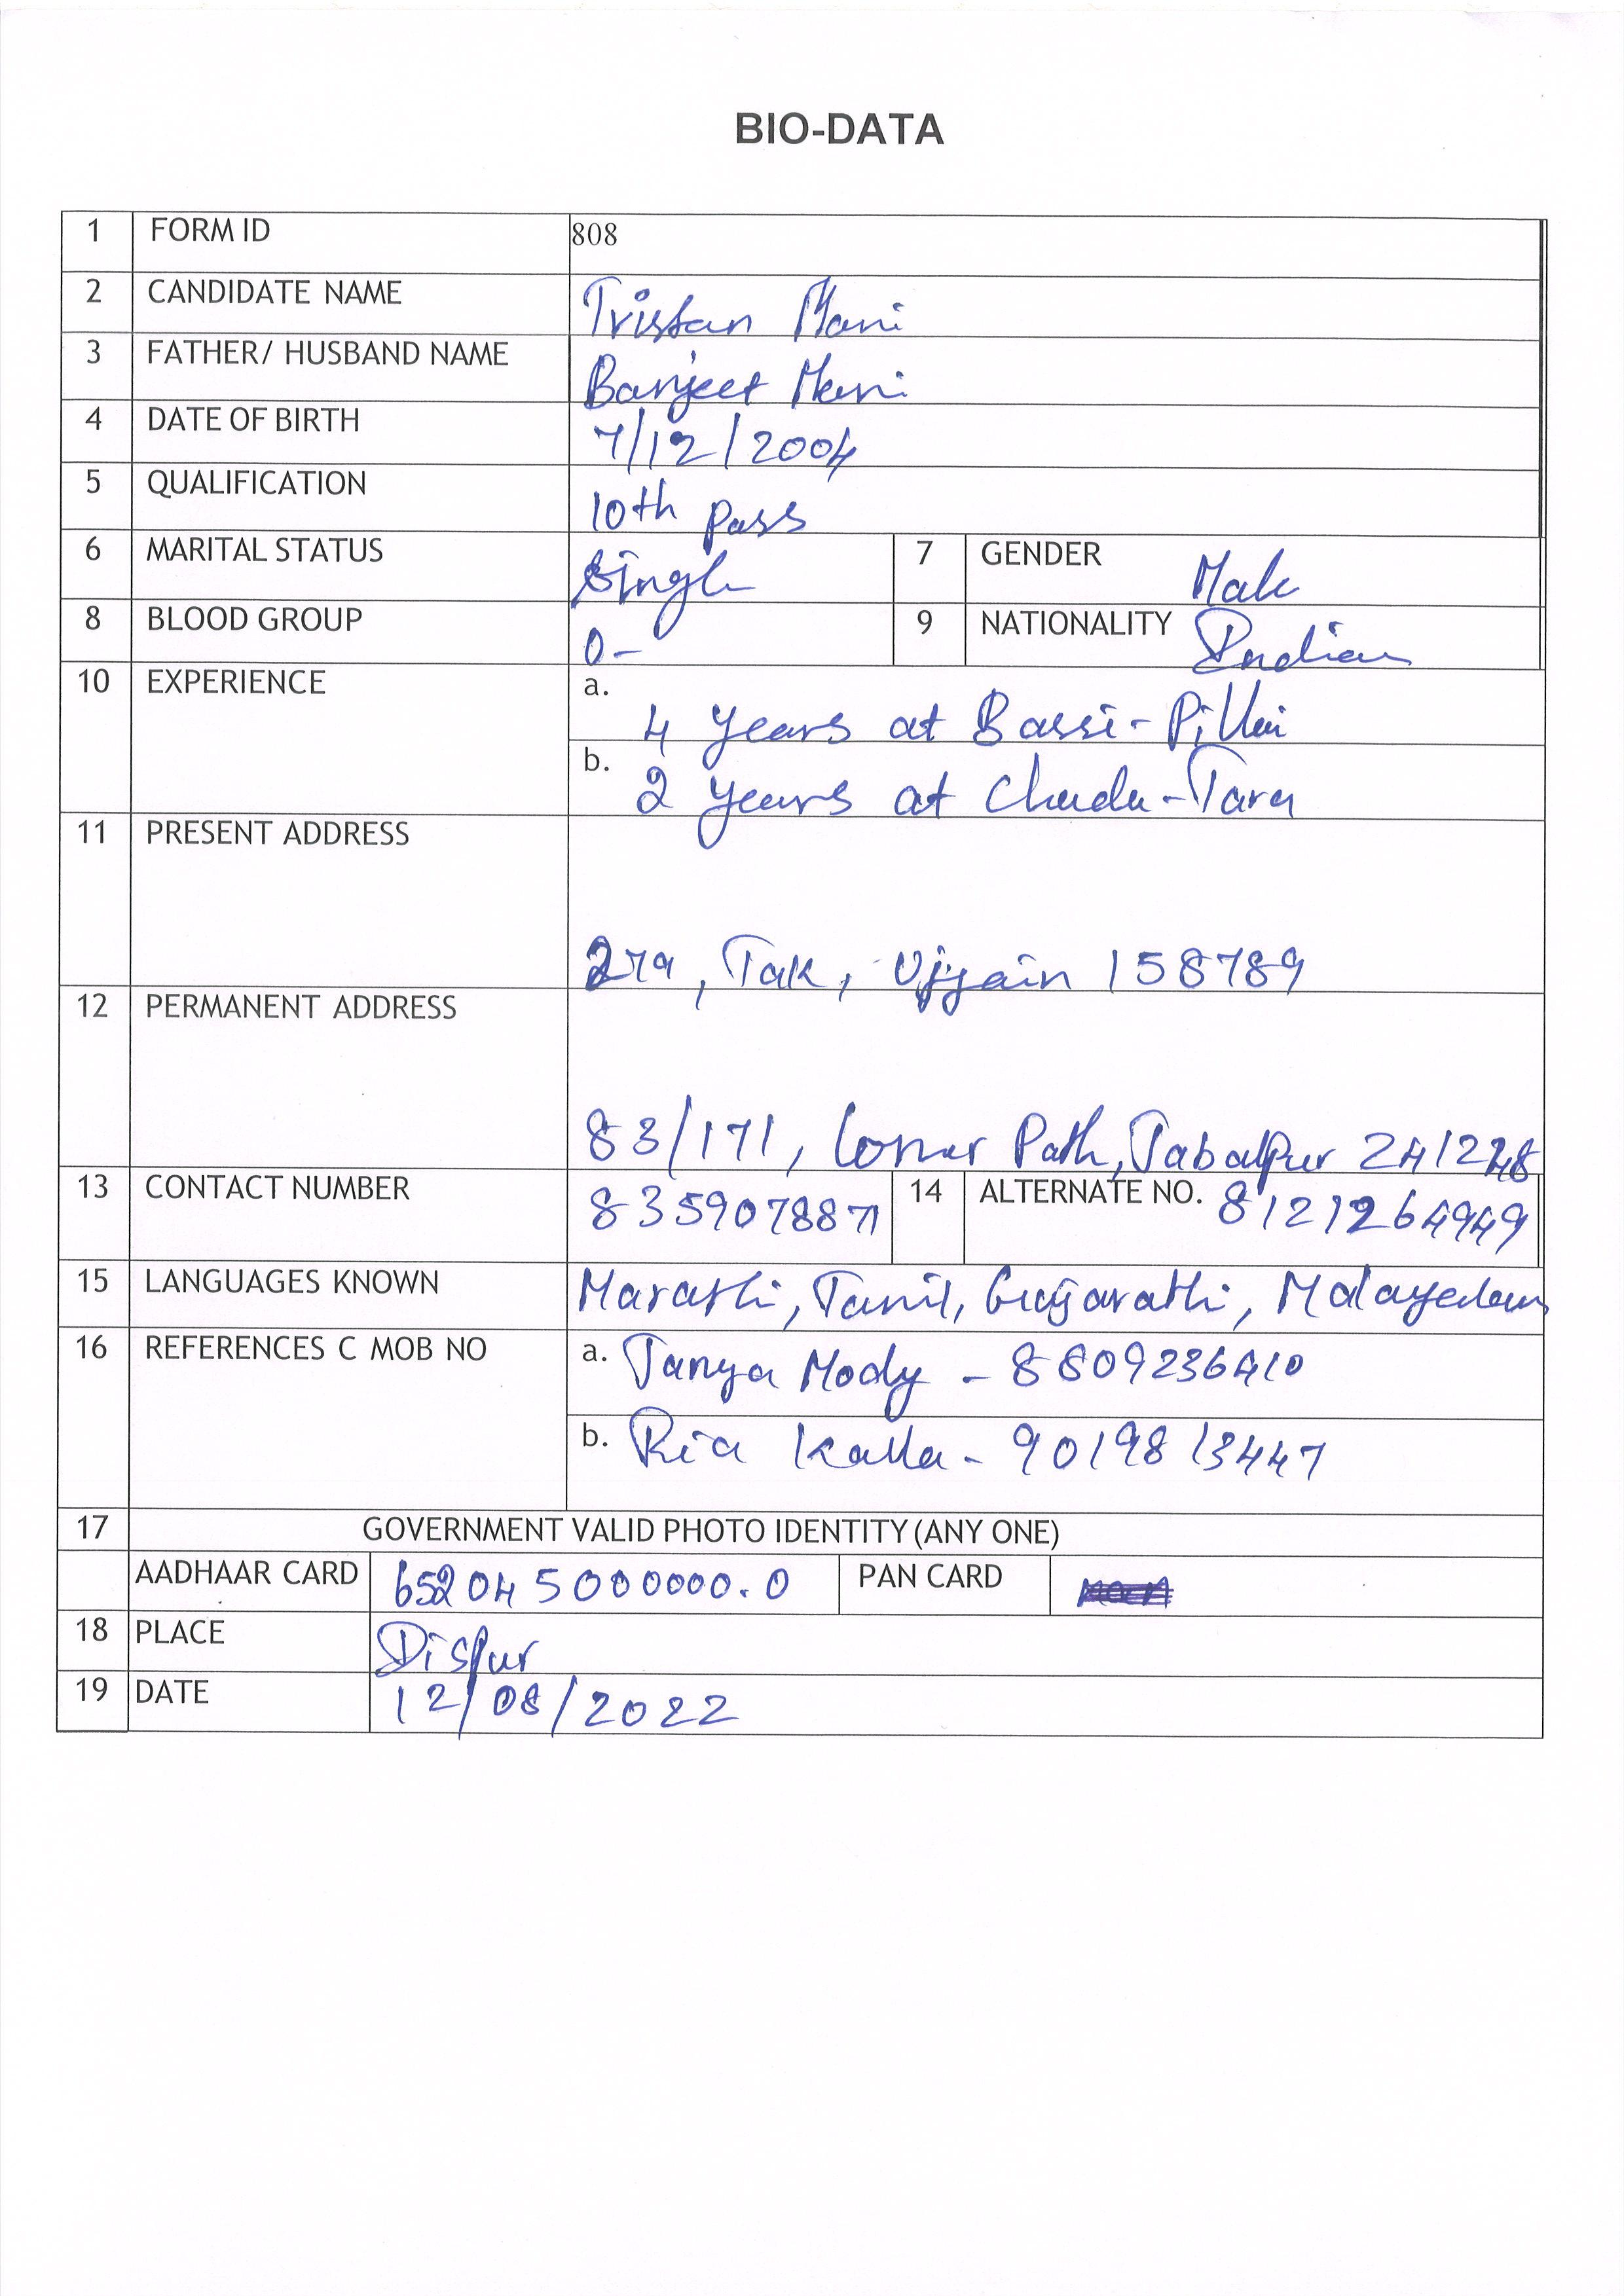 BIO-DATA
1 FORM ID 808
2 CANDIDATE NAME Tristan Mani
3 FATHER/ HUSBAND NAME Banjeet Mani
4 DATE OF BIRTH 7/12/2004
5 QUALIFICATION 10th pass
6 MARITAL STATUS Single 7 GENDER Male
8 BLOOD GROUP O- 9 NATIONALITY Indian
10 EXPERIENCE a. 4 years at Bassi-Pillai
b. 2 years at Chada-Tara
11 PRESENT ADDRESS
279, Tak, Ujjain 158789
12 PERMANENT ADDRESS
83/171, Path, Jabalpur 241228
13 CONTACT NUMBER 8359078871 14 ALTERNATE NO. 8121264949
15 LANGUAGES KNOWN Marathi, Tamil, Gujarathi, Malayedam
16 REFERENCES C MOB NO a. Tanya Mody - 8809236410
b. Ria Kalla - 9019813447
17 GOVERNMENT VALID PHOTO IDENTITY (ANY ONE)
AADHAAR CARD 652045000000.0 PAN CARD
18 PLACE Dispur
19 DATE 12/08/2022